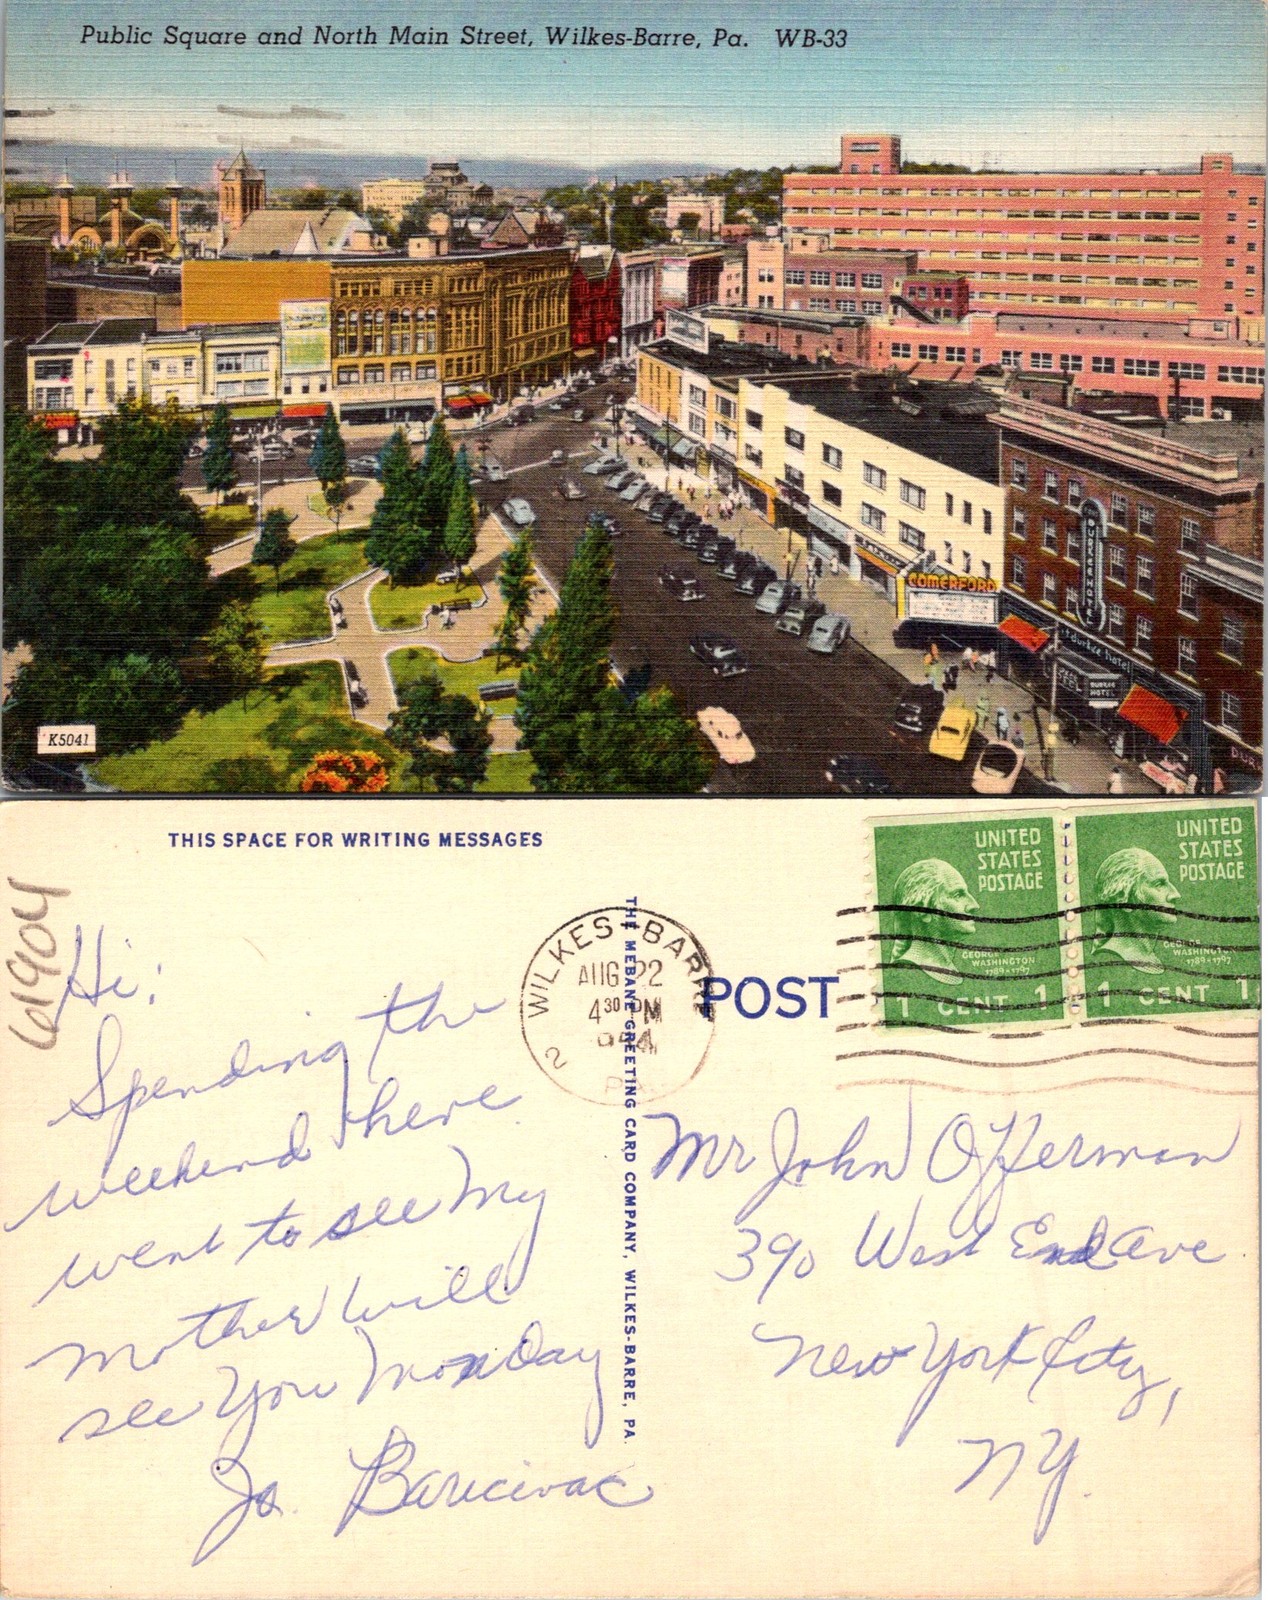 Public Square and North Main Street, Wilkes-Barre, Pa. WB-33
COMERFORD
Hotel
HOTEL
K5041
THIS SPACE FOR WRITING MESSAGES
61904
Hi:
Spending the
weekend here
went to see my
mother will
see you Monday
Jo.
THE MEBANE GREETING CARD COMPANY, WILKES-BARRE, PA.
WILKES-BARRE
AUG 22
4 30 PM
PA.
2
POST
UNITED
STATES
POSTAGE
GEORGE
WASHINGTON
1789-1797
1 CENT 1
UNITED
STATES
POSTAGE
GEORGE
WASHINGTON
1789-1797
1 CENT 1
Mr John Offerman
390 West End Ave
New York City,
NY.